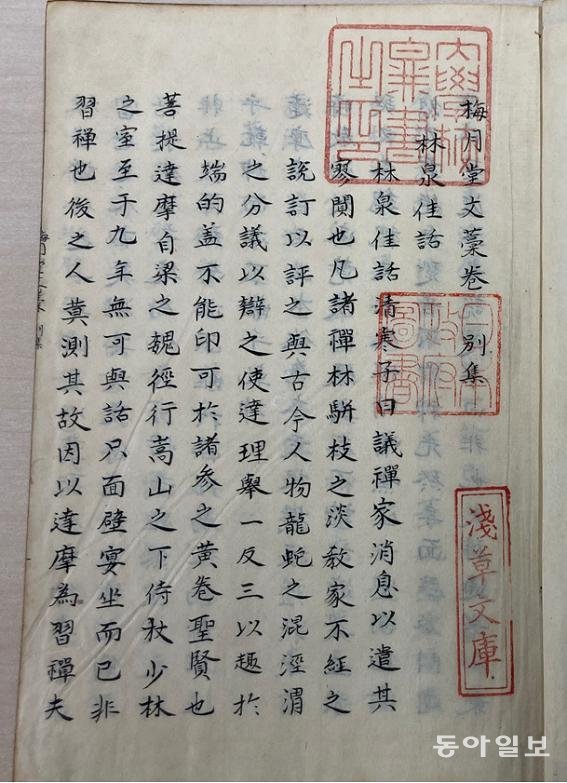 梅月堂文藁卷 別集
林泉佳話
林泉佳話清寒子曰議禪家消息以遣其
寥闃也凡諸禪林駢枝之淡敎家不経之
說訂以評之與古今人物龍蛇之混涇渭
之分議以辯之使達理舉一反三以趣於
端的盖不能印可於諸參之黃卷聖賢也
菩提達摩自梁之魏徑行嵩山之下侍杖少林
之室至于九年無可與話只面壁宴坐而已非
習禪也後之人莫測其故因以達摩為習禪夫
大學校圖書之印
日本政府圖書
淺草文庫
동아일보